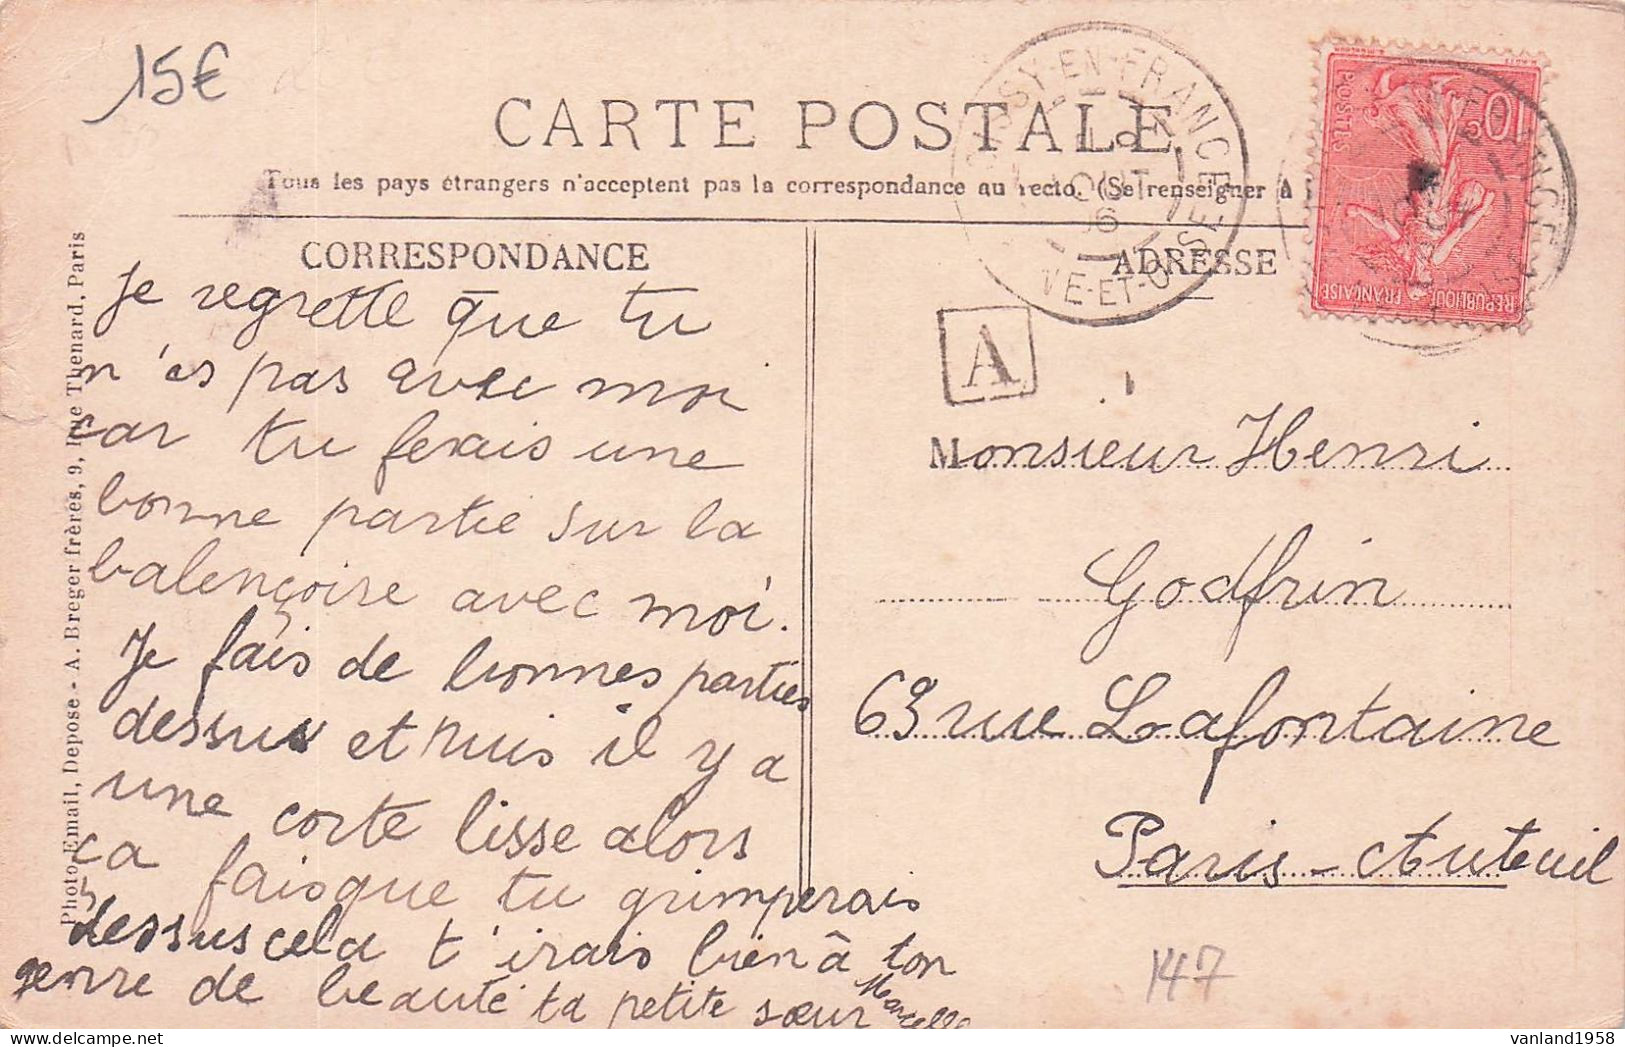 15€
CARTE POSTALE
Tous les pays étrangers n'acceptent pas la correspondance au recto. (Se renseigner à
CORRESPONDANCE
Je regrette que tu
n'es pas avec moi
car tu ferais une
bonne partie sur la
balençoire avec moi.
Je fais de bonnes parties
dessus et puis il y a
une corte lisse alors
ça fais que tu grimperais
dessus cela t'irais bien à ton
genre de beauté ta petite sœur
Marcelle
Photo Email, Depose - A. Breger frères, 9, Rue Thenard, Paris
ADRESSE
A
Monsieur Henri
Godfrin
63 rue Lafontaine
Paris-Auteuil
147
EN-FRANCE
AOUT
06
ET-OISE
POSTES
10c
REPUBLIQUE
FRANÇAISE
vanland1958